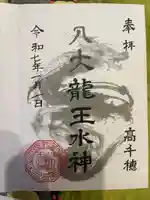 奉拝
高千穂
八大龍王水神
令和七年一月一日